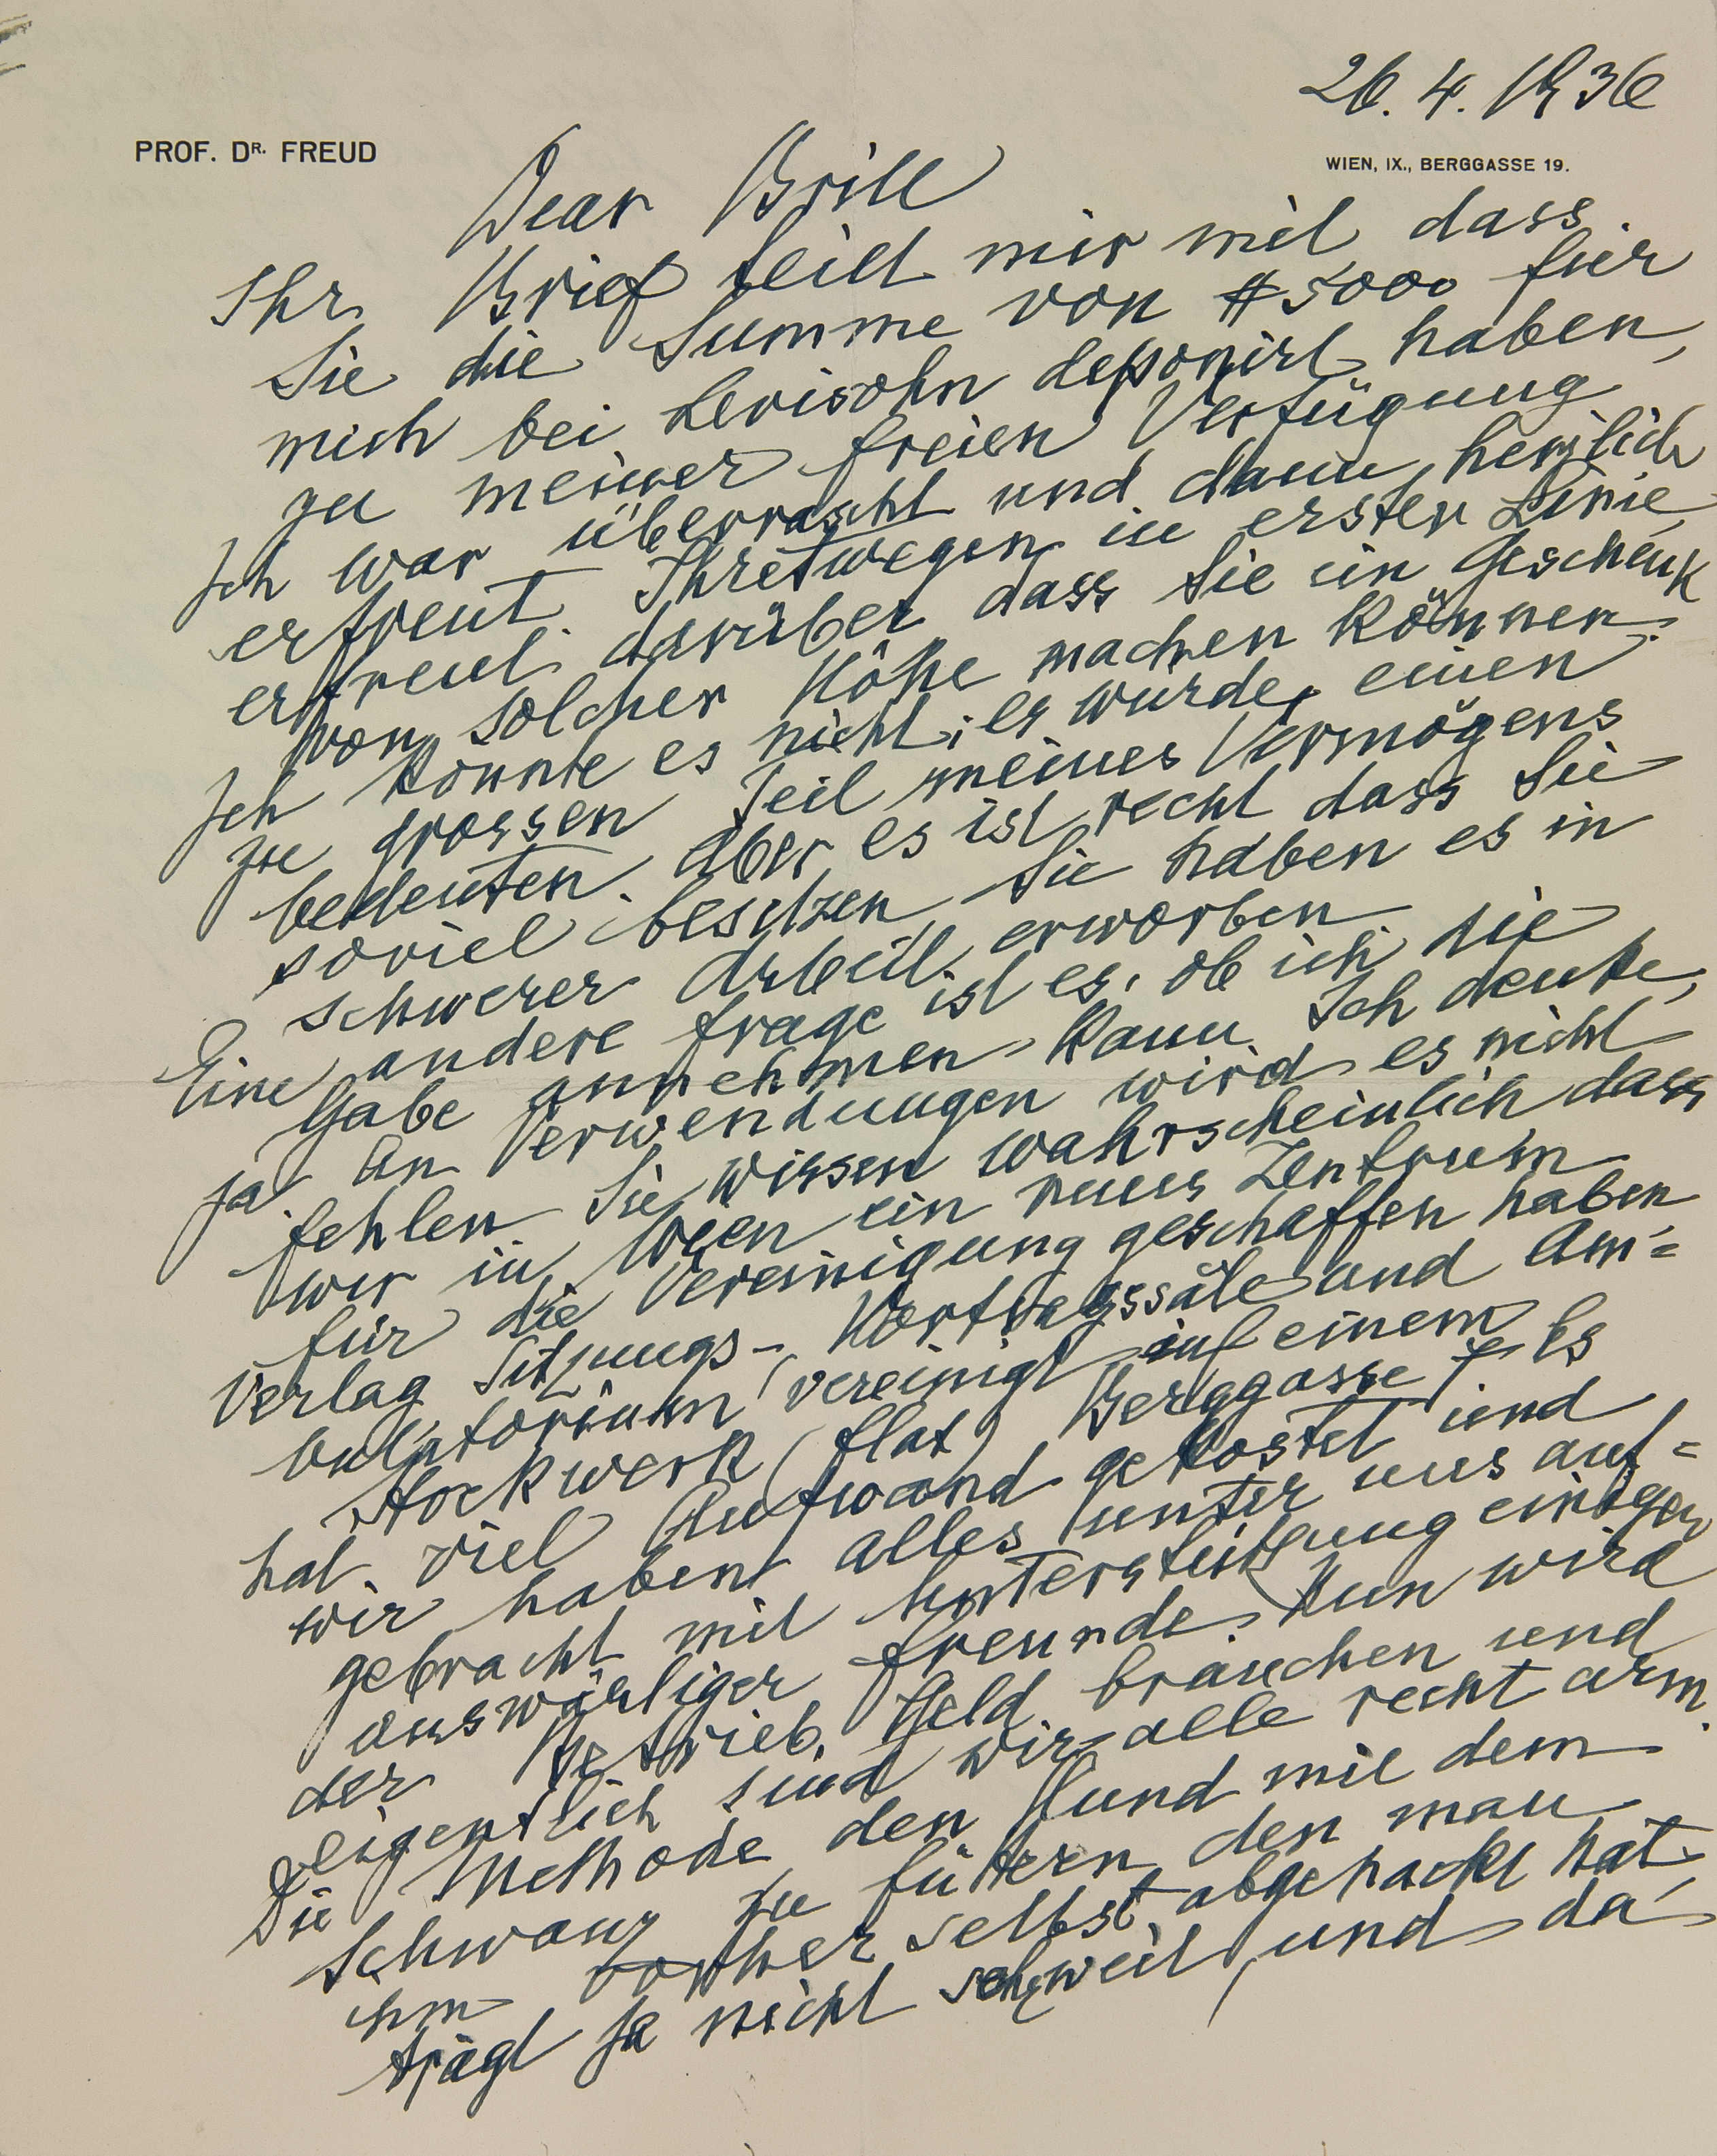 26. 4. 1936
PROF. DR. FREUD
WIEN, IX., BERGGASSE 19.
Dear Brill
Ihr Brief teilt mir mit dass
Sie die Summe von $5000 für
mich bei Levisohn deponirt haben,
zu meiner freien Verfügung
Ich war überrascht und dann herzlich
erfreut. Ihretwegen in erster Linie,
erfreut darüber dass Sie ein Geschenk
von solcher Höhe machen können.
Ich könnte es nicht; es würde einen
zu grossen Teil meines Vermögens
bedeuten. Aber es ist recht dass Sie
soviel besitzen, Sie haben es in
schwerer Arbeit erworben
Eine andere Frage ist es, ob ich die
Gabe annehmen kann. Ich denke,
ja. An Verwendungen wird es nicht
fehlen. Sie wissen wahrscheinlich dass
wir in Wien ein neues Zentrum
für die Vereinigung geschaffen haben
Verlag Sitzungs-, Vortragssäle und Am=
bulatorium vereinigt auf einem
Stockwerk (flat) Berggasse 7. Es
hat viel Aufwand gekostet und
wir haben alles unter uns auf=
gebracht mit Unterstützung einiger
auswärtiger Freunde. Nun wird
der Betrieb Geld brauchen und
eigentlich sind wir alle recht arm.
Die Methode, den Hund mit dem
Schwanz zu füttern, den man
ihm vorher selbst abgehackt hat
trägt ja nicht sehr weit, und da